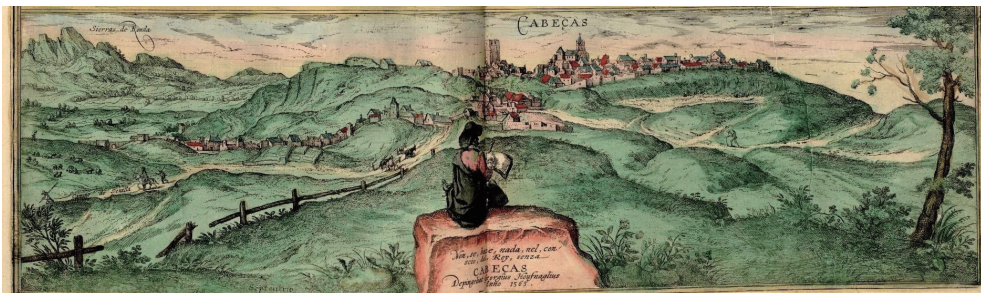 Sierras de Ronda
CABEÇAS
Non, se, haze, nada, nel, con
seio, del, Rey, senza
CABEÇAS
Depingebat Georgius Hoefnaglius
Anno 1565.
Septentrio